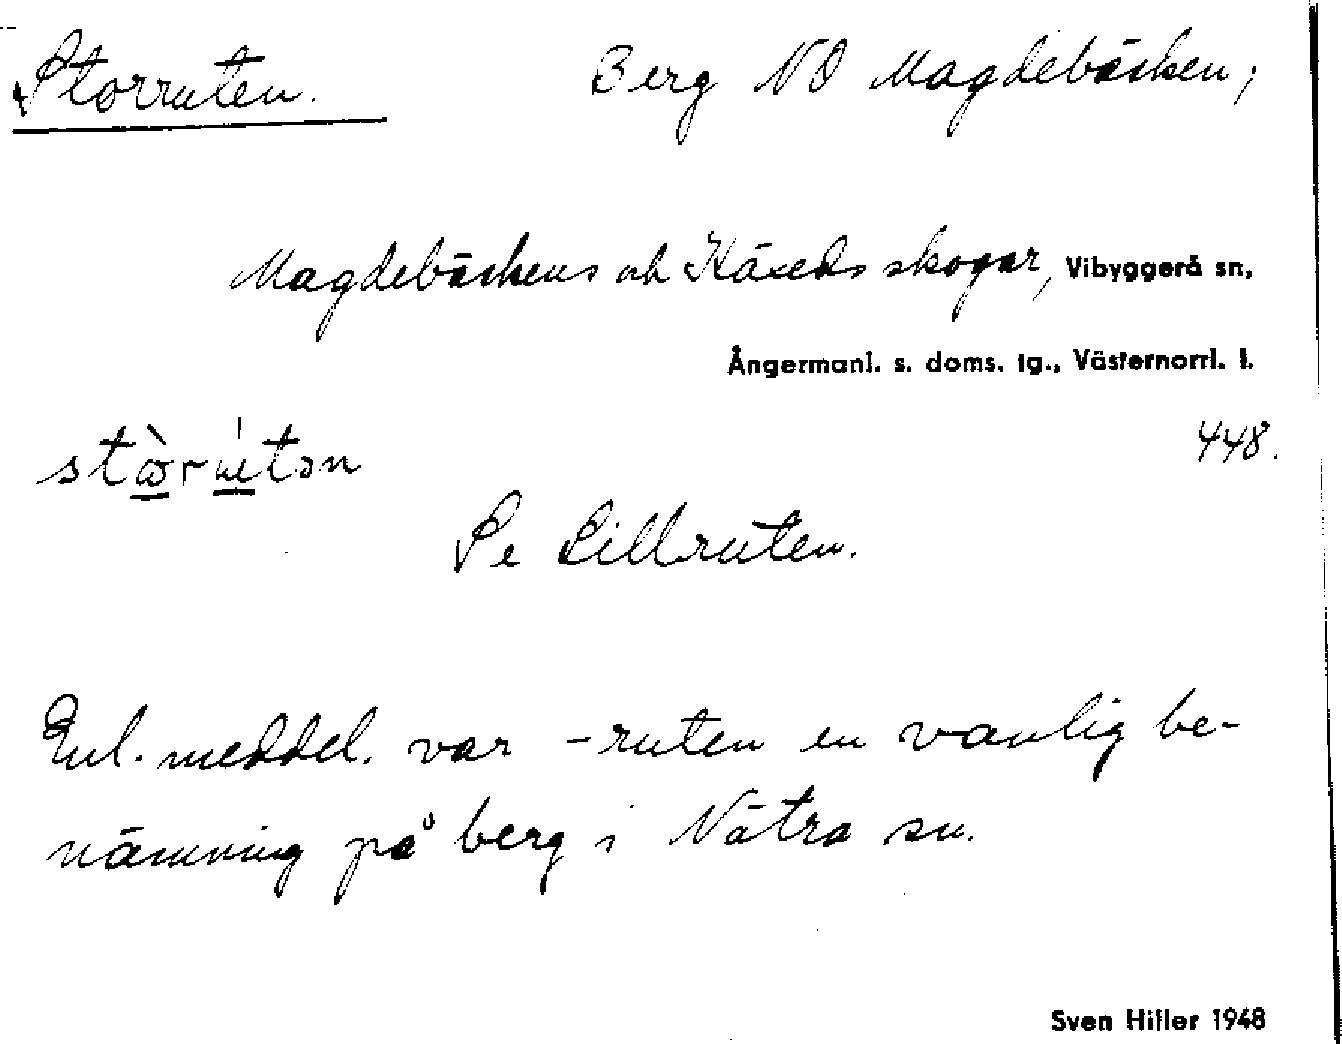 Storruten. Berg NO Magdebäcken,
Magdebäckens och Häxeds skogar, Vibyggerå sn,
Ångermanl. s. doms. tg., Västernorrl. l.
448.
Se Lillruten.
Enl. meddel. var -ruten en vanlig be-
nämning på berg i Nätra sn.
Sven Hiller 1948